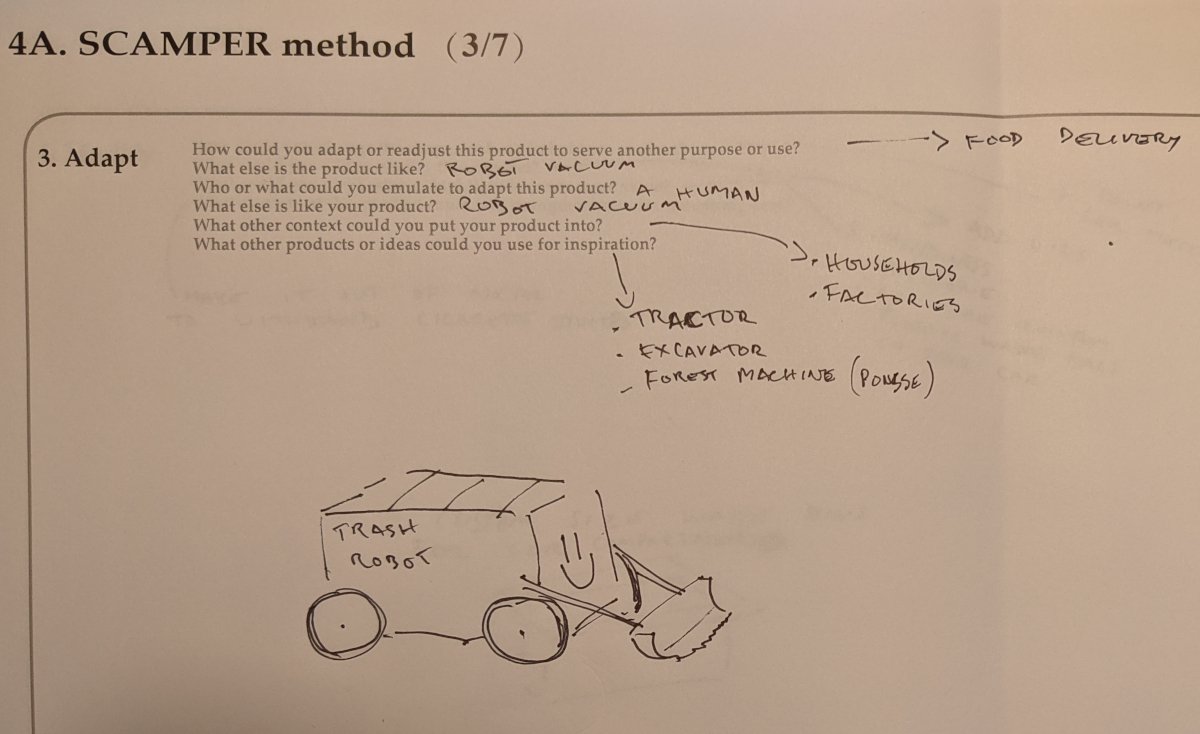 4A. SCAMPER method (3/7)
3. Adapt
How could you adapt or readjust this product to serve another purpose or use? → FOOD DELIVERY
What else is the product like? ROBOT VACUUM
Who or what could you emulate to adapt this product? A HUMAN
What else is like your product? ROBOT VACUUM
What other context could you put your product into?
What other products or ideas could you use for inspiration?
• HOUSEHOLDS
• FACTORIES
• TRACTOR
• EXCAVATOR
- FOREST MACHINE (PONSSE)
TRASH
ROBOT